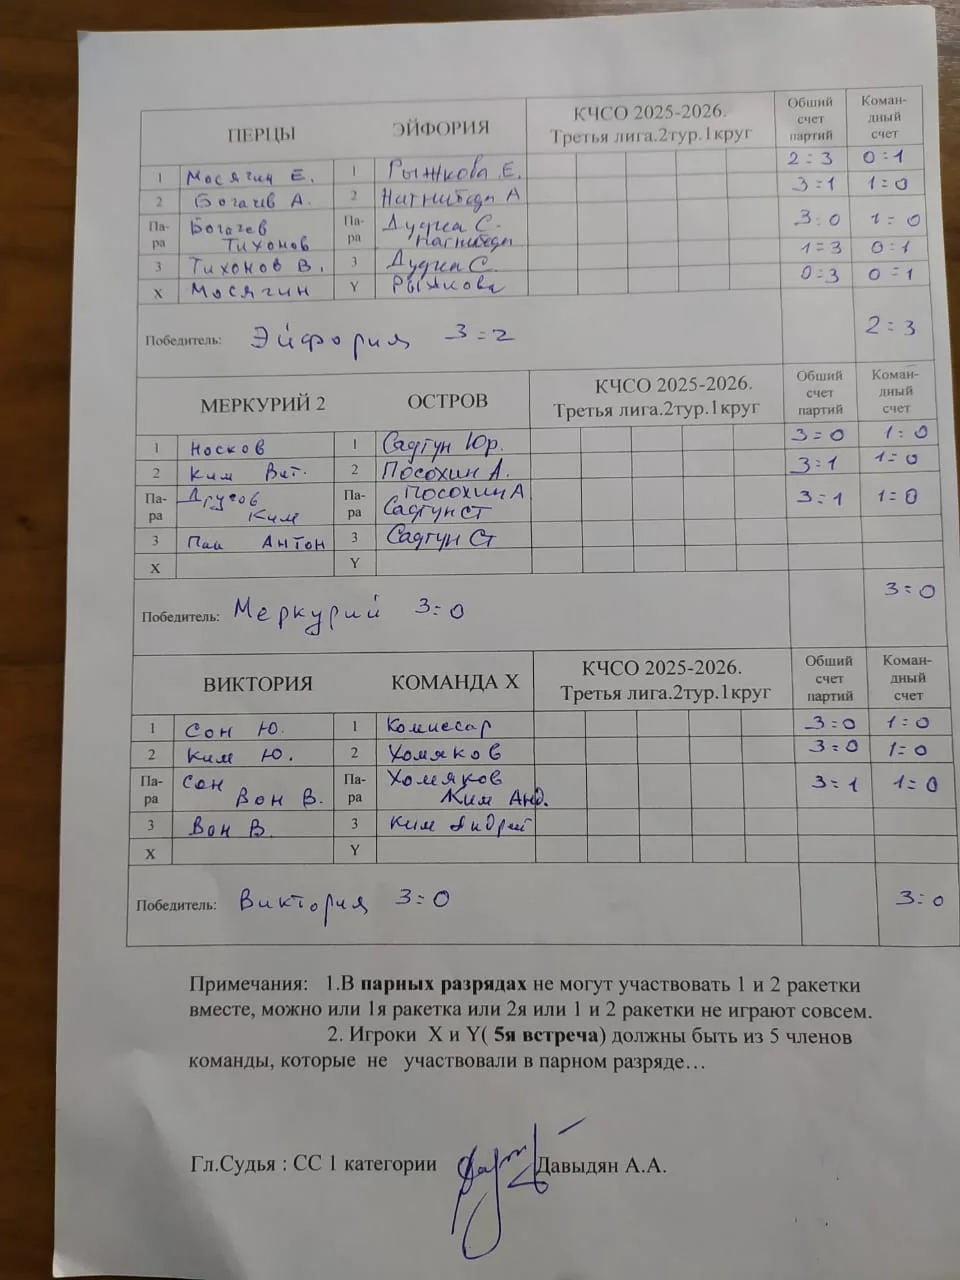 ПЕРЦЫ ЭЙФОРИЯ КЧСО 2025-2026. Третья лига.2тур.1круг Общий счет партий Коман-дный счет
1 Мосягин Е. 1 Рыжкова Е. 2=3 0=1
2 Богачев А. 2 Нагнибеда А 3=1 1=0
Па-ра Богачев Тихонов Па-ра Дудка С. Нагнибеда 3=0 1=0
3 Тихонов В. 3 Дудка С. 1=3 0=1
X Мосягин Y Рыжкова 0=3 0=1
Победитель: Эйфория 3=2 2=3
МЕРКУРИЙ 2 ОСТРОВ КЧСО 2025-2026. Третья лига.2тур.1круг Общий счет партий Коман-дный счет
1 Носков 1 Садгун Юр. 3=0 1=0
2 Ким Вит. 2 Посохин А. 3=1 1=0
Па-ра Другов Ким Па-ра Посохин А Садгун Ст 3=1 1=0
3 Пак Антон 3 Садгун Ст
X Y
Победитель: Меркурий 3=0 3=0
ВИКТОРИЯ КОМАНДА X КЧСО 2025-2026. Третья лига.2тур.1круг Общий счет партий Коман-дный счет
1 Сон Ю. 1 Комиссар 3=0 1=0
2 Ким Ю. 2 Хомяков 3=0 1=0
Па-ра Сон Вон В. Па-ра Хомяков Ким Анд. 3=1 1=0
3 Вон В. 3 Ким Андрей
X Y
Победитель: Виктория 3=0 3=0
Примечания: 1.В парных разрядах не могут участвовать 1 и 2 ракетки
вместе, можно или 1я ракетка или 2я или 1 и 2 ракетки не играют совсем.
2. Игроки X и Y( 5я встреча) должны быть из 5 членов
команды, которые не участвовали в парном разряде…
Гл.Судья : СС 1 категории Давыдян А.А.